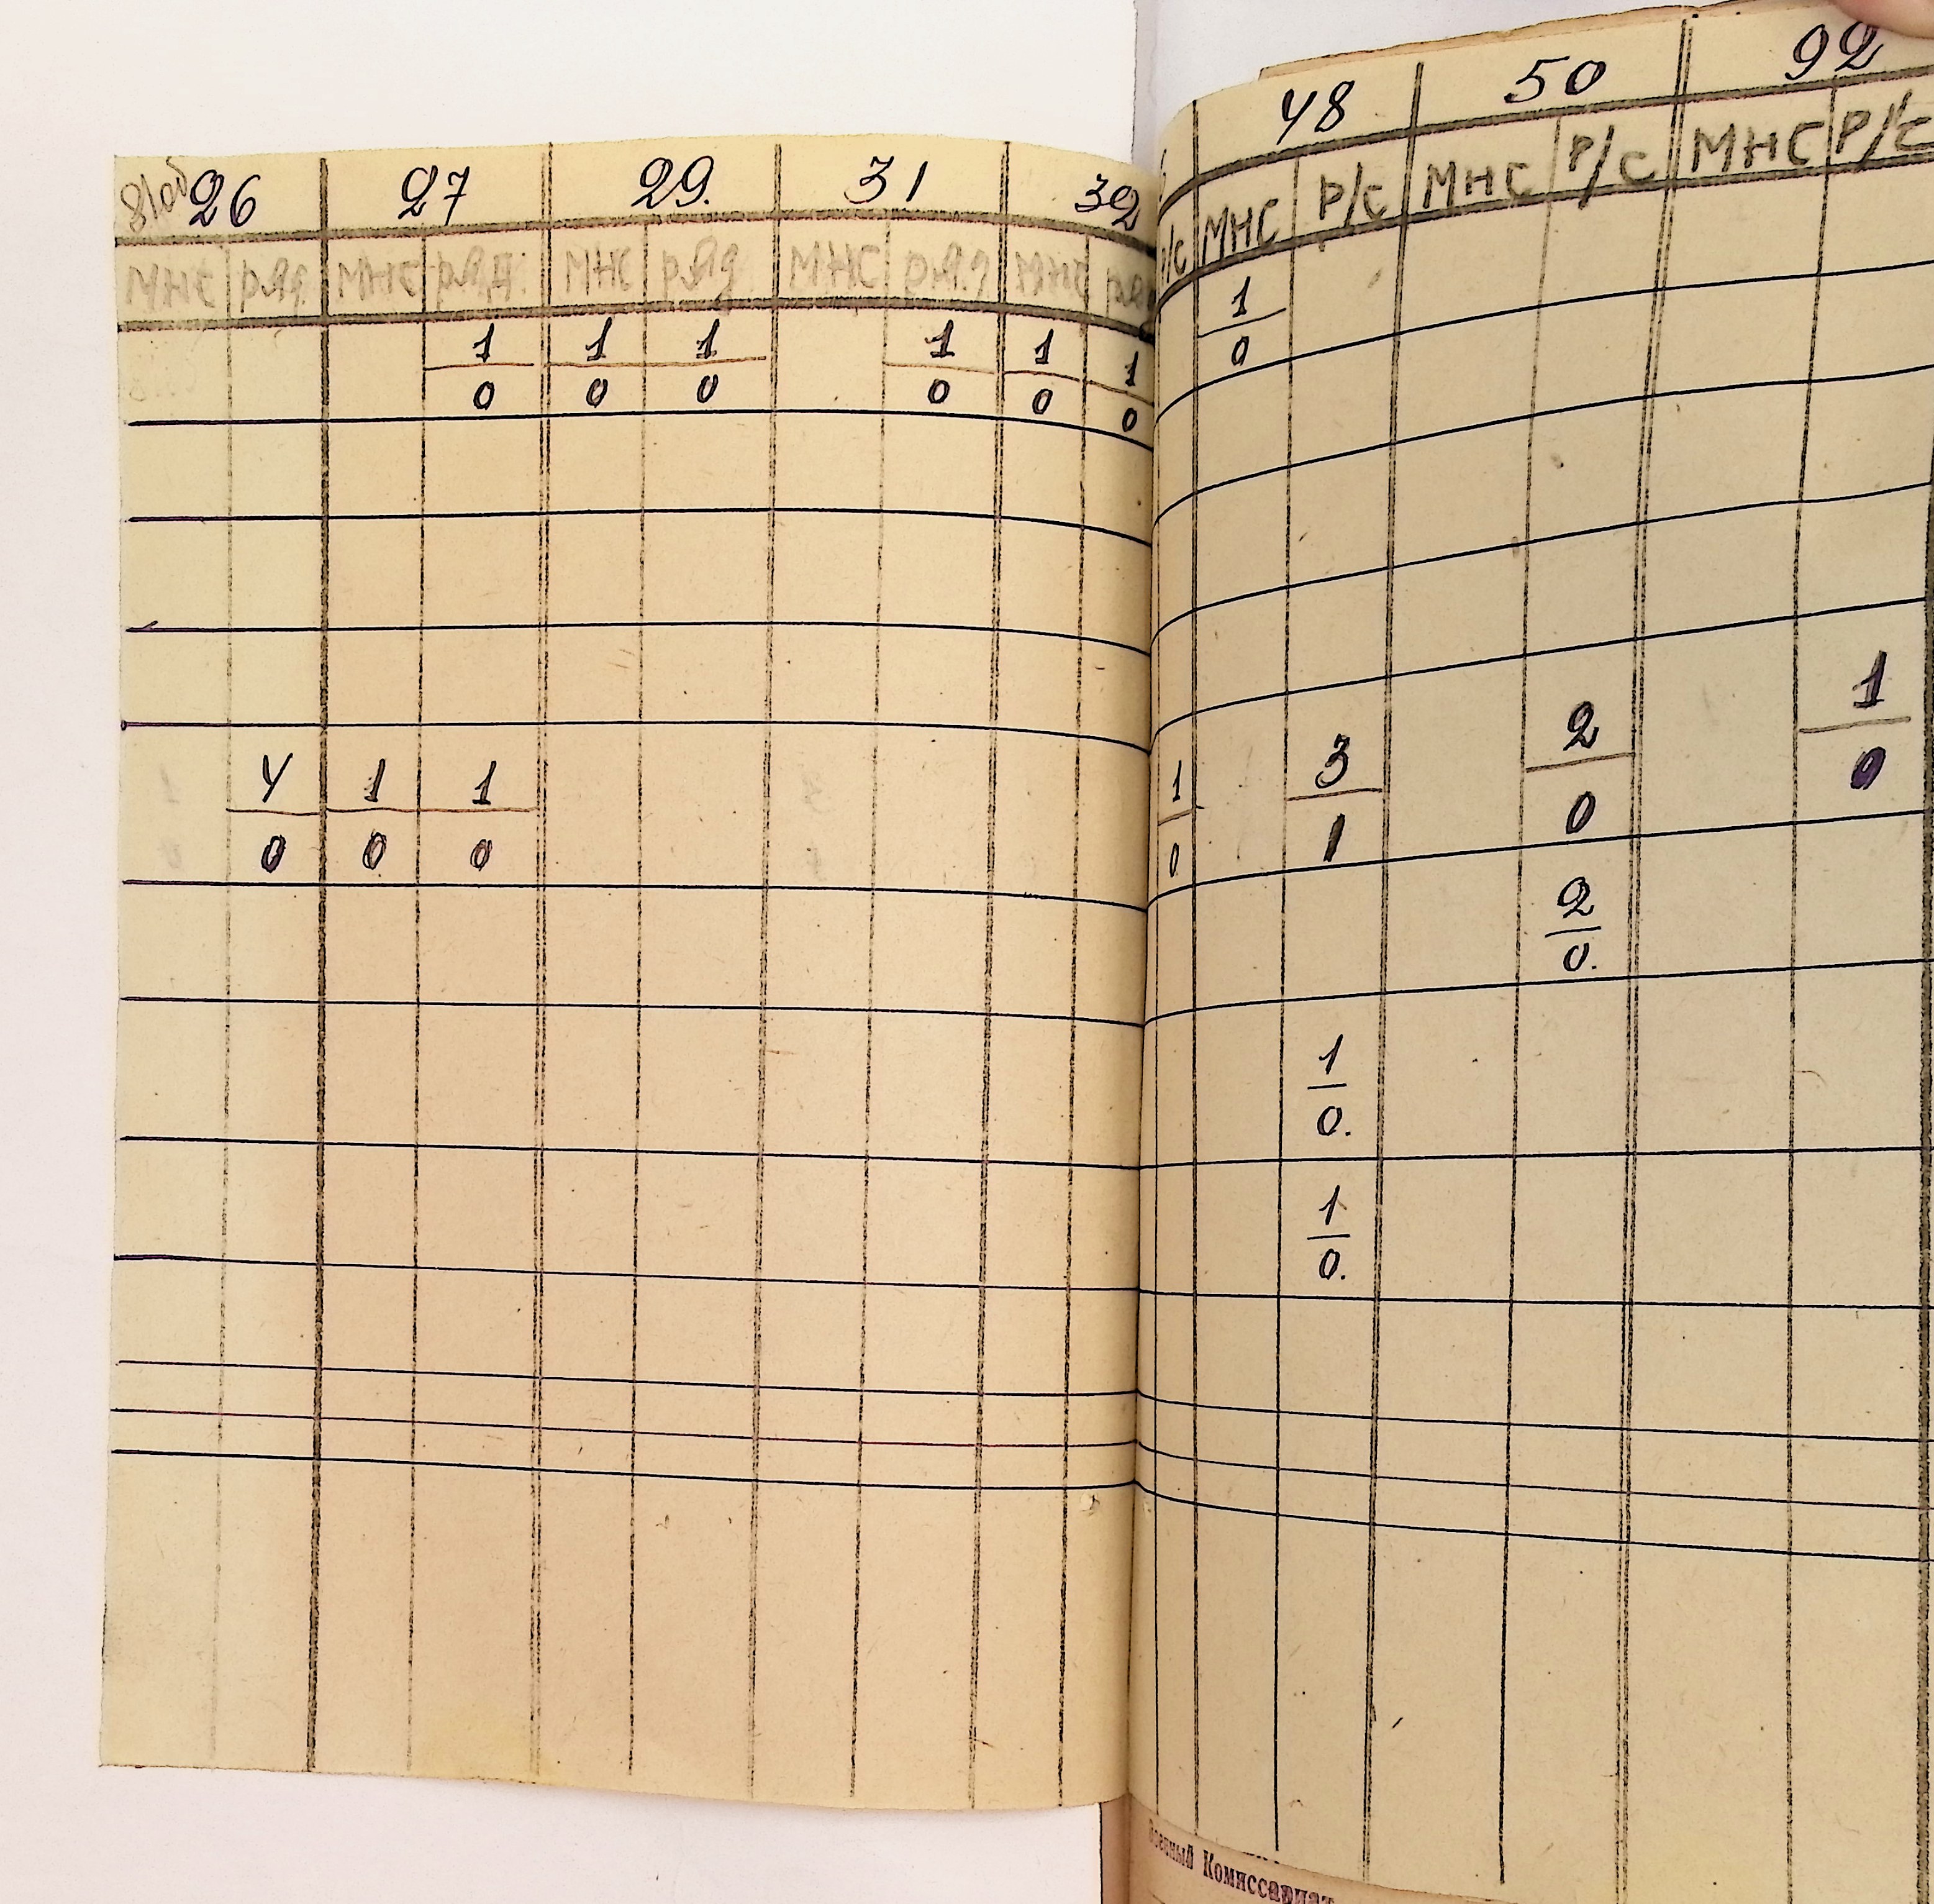 26 27 29. 31 32
МНС ряд. МНС ряд. МНС ряд МНС ряд МНС
1 1 1 1 1 1
0 0 0 0 0 0
4 1 1
0 0 0
48 50 92
Р/С МНС Р/С МНС Р/С МНС Р/С
1
0
1 3 2 1
0 1 0 0
2
0.
1
0.
1
0.
Военный Комиссариат